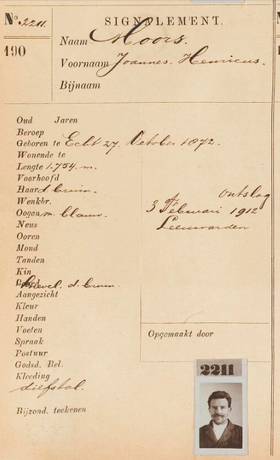 No. 2211. SIGNALEMENT.
190
Naam Moors.
Voornaam Joannes. Henricus.
Bijnaam
Oud Jaren
Beroep
Geboren te Echt 27 October 1872.
Wonende te
Lengte 1.754. m.
Voorhoofd
Haar d bruin.
Wenkbr.
Oogen m. blauw.
Neus
Ooren
Mond
Tanden
Kin
Knevel. d. bruin.
Aangezicht
Kleur
Handen
Voeten
Spraak
Postuur
Godsd. Rel.
Kleeding
diefstal.
Bijzond. teekenen
ontslag
3 Februari 1912
Leeuwarden
Opgemaakt door
2211